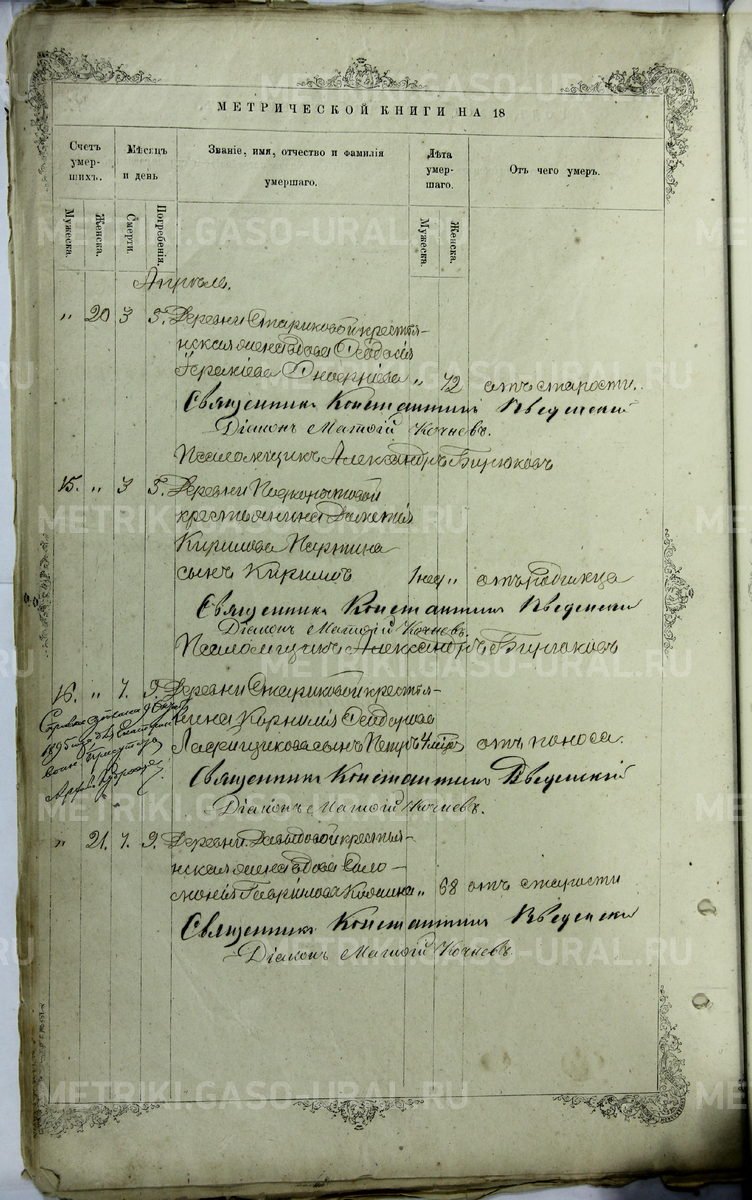 МЕТРИЧЕСКОЙ КНИГИ НА 18
Счетъ умерших.
Мѣсяцъ и день
Званіе, имя, отчество и фамилія умершаго.
Лѣта умершаго.
Отъ чего умеръ.
Мужеска.
Женска.
Смерти.
Погребенія.
Мужеска.
Женска.
Апрѣль.
" 20 3 5. Деревни Стариковой крестья-
нская жена вдова Ѳеодосія
" 72 отъ старости.
Священникъ Константинъ Введенскій
Діаконъ Матѳій Кочневъ.
Псаломщикъ Александръ Бирюковъ
15. " 3 5. Деревни
крестьянина
Кирилова
сынъ Кирилъ 1 нед " отъ родимца
Священникъ Константинъ Введенскій
Діаконъ Матѳій Кочневъ.
Псаломщикъ Александръ Бирюковъ
16. " 7. 9. Деревни Стариковой крестья-
нина Корнилія Ѳеодорова
сынъ Петръ отъ поноса.
Священникъ Константинъ Введенскій
Діаконъ Матѳій Кочневъ.
" 21. 7. 9. Деревни Давыдовой крестья-
нская жена вдова Соло-
монія Гаврилова " 68 отъ старости
Священникъ Константинъ Введенскій
Діаконъ Матѳій Кочневъ.
METRIKI.GASO-URAL.RU